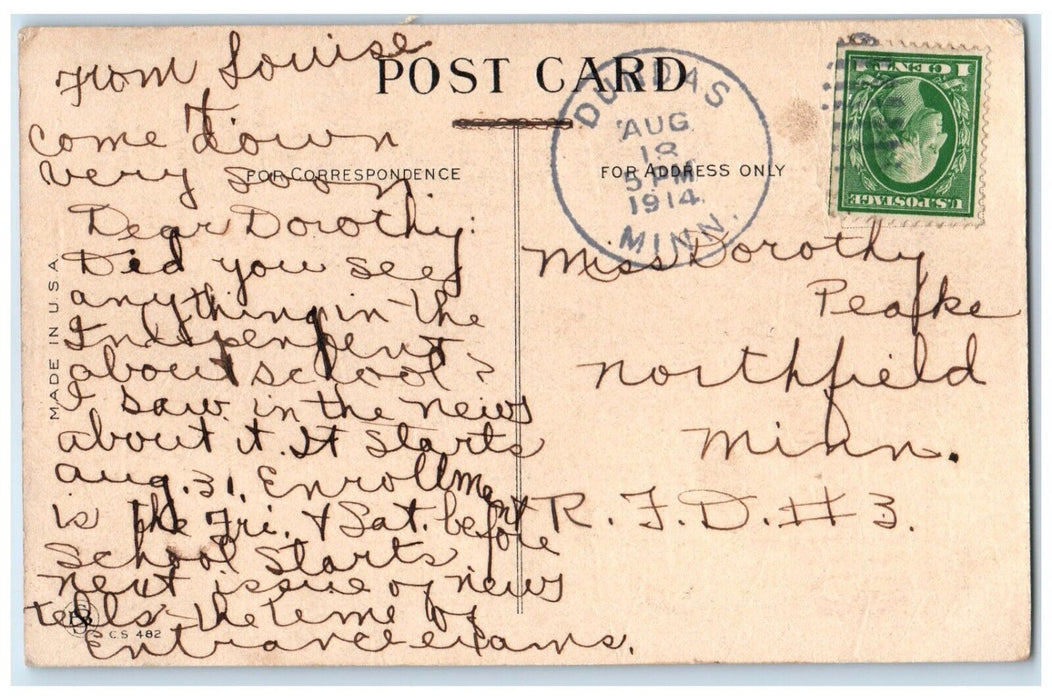 from Louise
come down
very soon
POST CARD
FOR CORRESPONDENCE
FOR ADDRESS ONLY
DUNDAS
AUG
18
5 PM
1914
MINN.
1 CENT 1
U.S. POSTAGE
MADE IN U.S.A.
Dear Dorothy:
Did you see
anything in the
Independent
about school?
I saw in the news
about it. It starts
Aug. 31. Enrollment
is the Fri. & Sat. before
school starts
next issue of news
tells the time of
entrance exams.
C.S 482
Miss Dorothy
Peafke
Northfield
Minn.
R. F. D. # 3.